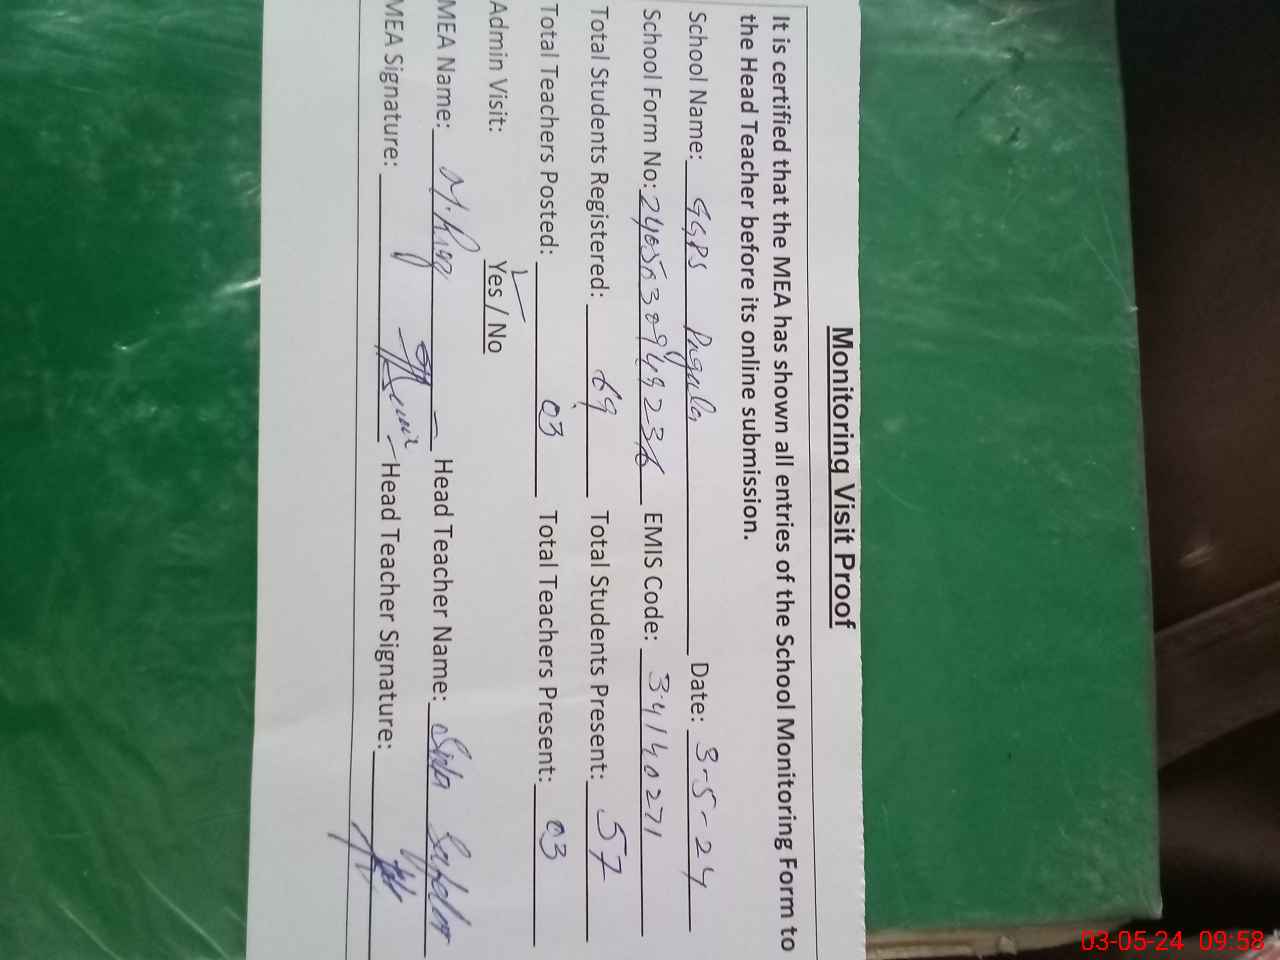 Monitoring Visit Proof
It is certified that the MEA has shown all entries of the School Monitoring Form to
the Head Teacher before its online submission.
School Name: GGPS Date: 3-5-24
School Form No: EMIS Code: 34140271
Total Students Registered: 69 Total Students Present: 57
Total Teachers Posted: 03 Total Teachers Present: 03
Admin Visit: Yes / No
MEA Name: Head Teacher Name:
MEA Signature: Head Teacher Signature:
03-05-24 09:58